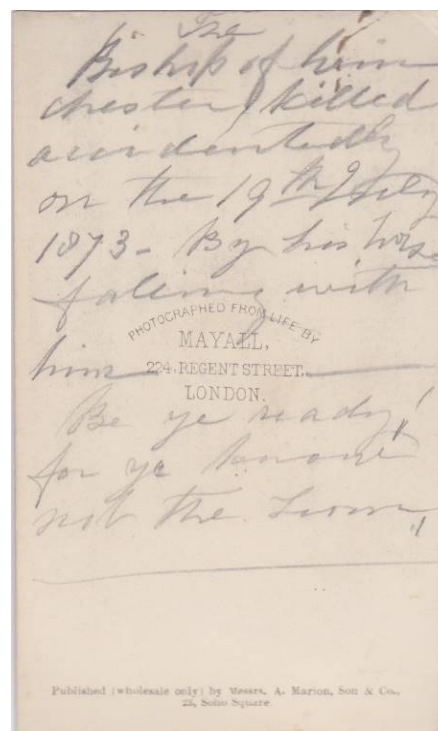 The
Bishop of Win
chester, killed
accidentally
on the 19th July
1873 - By his horse
falling with
PHOTOGRAPHED FROM LIFE BY
MAYALL,
him
224, REGENT STREET.
LONDON.
Be ye ready!
for ye know
not the hour!!
Published (wholesale only) by Messrs. A. Marion, Son & Co.,
23, Soho Square